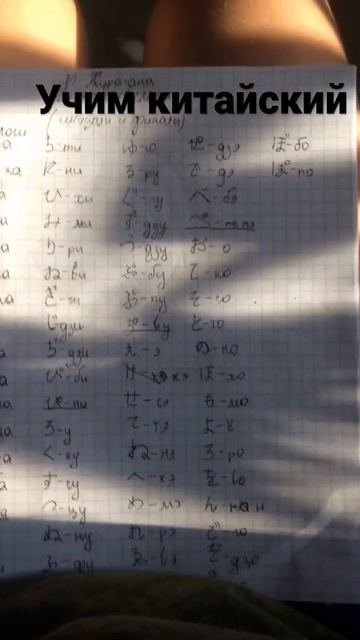 Учим китайский
(инициали и финали)
ち-ти ゆ-ю ぜ-дзэ ぼ-бо
に-ни る-ру で-дэ ぽ-по
ひ-хи ぐ-гу べ-бэ
み-ми ず-дзу
り-ри づ-дзу お-о
ゐ-ви ぶ-бу こ-ко
ぎ-ги ぷ-пу そ-со
じ-дзи と-то
ぢ-дзи え-э の-но
び-би け-кэ ほ-хо
ぴ-пи せ-сэ も-мо
う-у て-тэ よ-ё
く-ку ね-нэ ろ-ро
す-су へ-хэ を-во
つ-цу め-мэ ん-н
ぬ-ну れ-рэ ご-го
ふ-фу ゑ-вэ ぞ-дзо